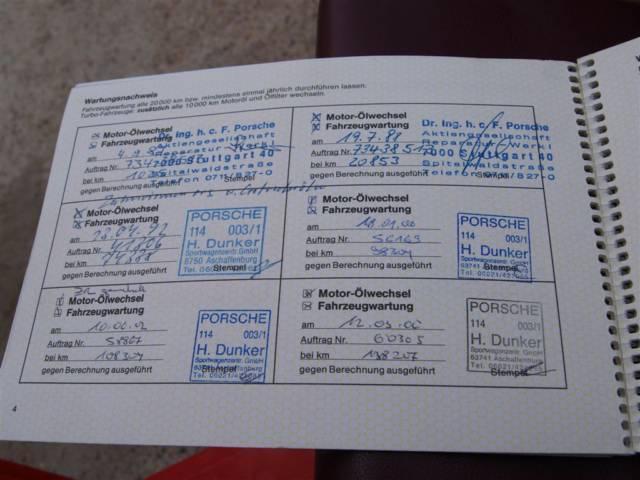 Wartungsnachweis
Fahrzeugwartung alle 20000 km bzw. mindestens einmal jährlich durchführen lassen.
Turbo-Fahrzeuge: zusätzlich alle 10000 km Motoröl und Ölfilter wechseln.
Motor-Ölwechsel
Fahrzeugwartung
am
Auftrag Nr.
bei km
gegen Berechnung ausgeführt
Stempel
Dr. Ing. h. c. F. Porsche
Aktiengesellschaft
Reparatur-Werk I
7000 Stuttgart 40
Spitalwaldstraße
Telefon 0711/827-0
Motor-Ölwechsel
Fahrzeugwartung
am 19.7.88
Auftrag Nr.
bei km 20853
gegen Berechnung ausgeführt
Stempel
Dr. Ing. h. c. F. Porsche
Aktiengesellschaft
Reparatur-Werk I
7000 Stuttgart 40
Spitalwaldstraße
Telefon 0711/827-0
Motor-Ölwechsel
Fahrzeugwartung
am 28.04.92
Auftrag Nr.
bei km
gegen Berechnung ausgeführt
Stempel
PORSCHE
114 003/1
H. Dunker
Sportwagenzentr. GmbH
8750 Aschaffenburg
Motor-Ölwechsel
Fahrzeugwartung
am
Auftrag Nr. 56163
bei km 98304
gegen Berechnung ausgeführt
Stempel
PORSCHE
114 003/1
H. Dunker
Sportwagenzentr. GmbH
63741 Aschaffenburg
Motor-Ölwechsel
Fahrzeugwartung
am 10.06.02
Auftrag Nr.
bei km 108304
gegen Berechnung ausgeführt
Stempel
PORSCHE
114 003/1
H. Dunker
Sportwagenzentr. GmbH
63741 Aschaffenburg
Motor-Ölwechsel
Fahrzeugwartung
am 12.05.06
Auftrag Nr. 60305
bei km 118207
gegen Berechnung ausgeführt
Stempel
PORSCHE
114 003/1
H. Dunker
Sportwagenzentr. GmbH
63741 Aschaffenburg
4